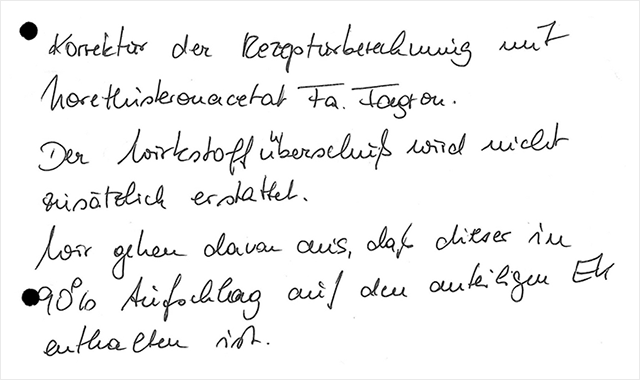 Korrektur der Rezepturberechnung mit
Norethisteronacetat Fa. Fagron.
Der Wirkstoffüberschuß wird nicht
zusätzlich erstattet.
Wir gehen davon aus, daß dieser im
90% Aufschlag auf den anteiligen EK
enthalten ist.